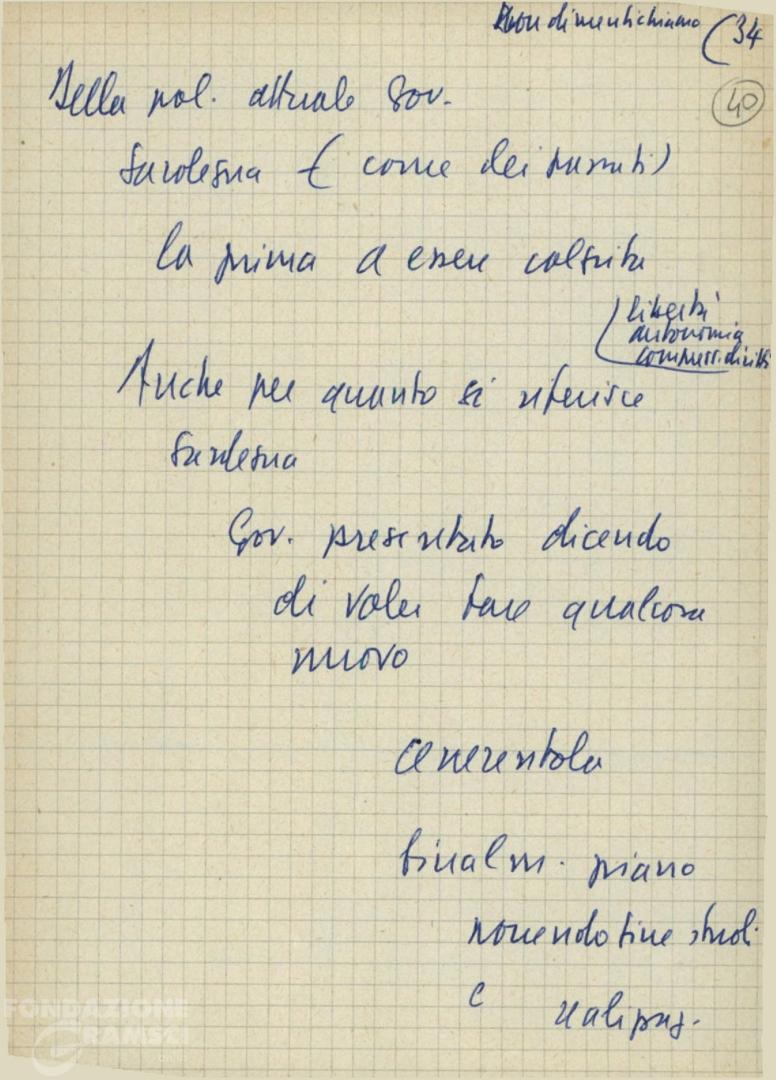 non dimentichiamo (34
40
Della pol. attuale Gov.
Sardegna – ( come dei passati )
la prima a essere colpita
libertà
autonomia
compress. diritti
Anche per quanto si riferisce
Sardegna
Gov. presentato dicendo
di voler fare qualcosa
nuovo
cenerentola
finalm. piano
ponendo fine studi
e
FONDAZIONE
GRAMSCI